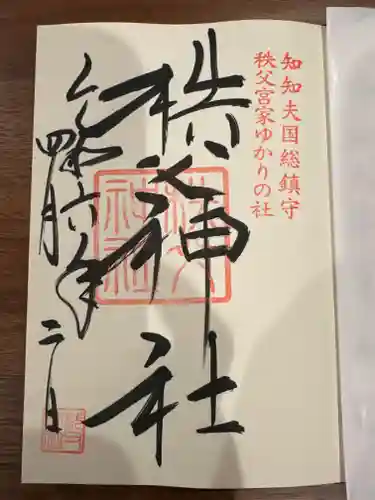 知知夫国総鎮守
秩父宮家ゆかりの社
秩父神社
令和六年
四月二日